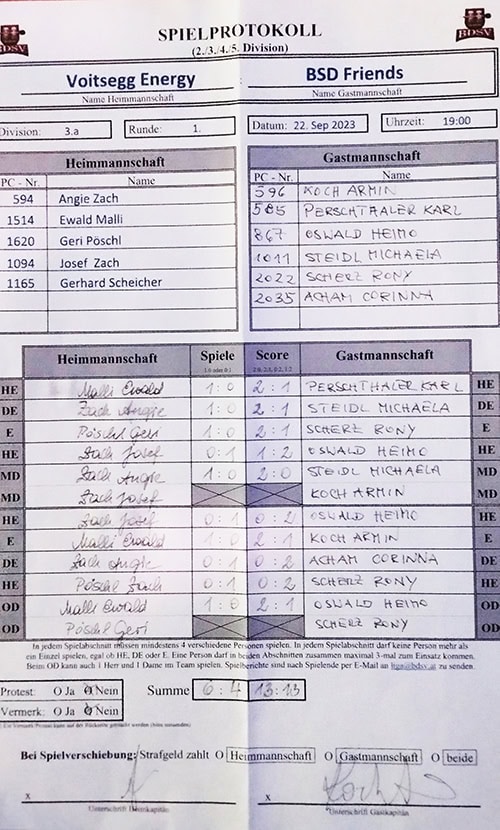 BDSV SPIELPROTOKOLL BDSV
(2./3./4./5. Division)
Voitsegg Energy BSD Friends
Name Heimmannschaft Name Gastmannschaft
Division: 3.a Runde: 1. Datum: 22. Sep 2023 Uhrzeit: 19:00
Heimmannschaft Gastmannschaft
PC - Nr. Name PC - Nr. Name
594 Angie Zach 596 KOCH ARMIN
1514 Ewald Malli 585 PERSCHTHALER KARL
1620 Geri Pöschl 867 OSWALD HEIMO
1094 Josef Zach 1011 STEIDL MICHAELA
1165 Gerhard Scheicher 2022 SCHERZ RONY
2035 ACHAM CORINNA
Heimmannschaft Spiele Score Gastmannschaft
1:0 oder 0:1 2:0, 2:1, 0:2, 1:2
HE Malli Ewald 1:0 2:1 PERSCHTHALER KARL HE
DE Zach Angie 1:0 2:1 STEIDL MICHAELA DE
E Pöschl Geri 1:0 2:1 SCHERZ RONY E
HE Zach Josef 0:1 1:2 OSWALD HEIMO HE
MD Zach Angie 1:0 2:0 STEIDL MICHAELA MD
MD Zach Josef KOCH ARMIN MD
HE Zach Josef 0:1 0:2 OSWALD HEIMO HE
E Malli Ewald 1:0 2:1 KOCH ARMIN E
DE Zach Angie 0:1 0:2 ACHAM CORINNA DE
HE Pöschl Zach 0:1 0:2 SCHERZ RONY HE
OD Malli Ewald 1:0 2:1 OSWALD HEIMO OD
OD Pöschl Geri SCHERZ RONY OD
In jedem Spielabschnitt müssen mindestens 4 verschiedene Personen spielen. In jedem Spielabschnitt darf keine Person mehr als
ein Einzel spielen, egal ob HE, DE oder E. Eine Person darf in beiden Abschnitten zusammen maximal 3-mal zum Einsatz kommen.
Beim OD kann auch 1 Herr und 1 Dame im Team spielen. Spielberichte sind nach Spielende per E-Mail an liga@bdsv.at zu senden.
Protest: O Ja O Nein Summe 6:4 13:13
Vermerk: O Ja O Nein
Bei Spielverschiebung: Strafgeld zahlt O Heimmannschaft O Gastmannschaft O beide
x x
Unterschrift Heimkapitän Unterschrift Gastkapitän